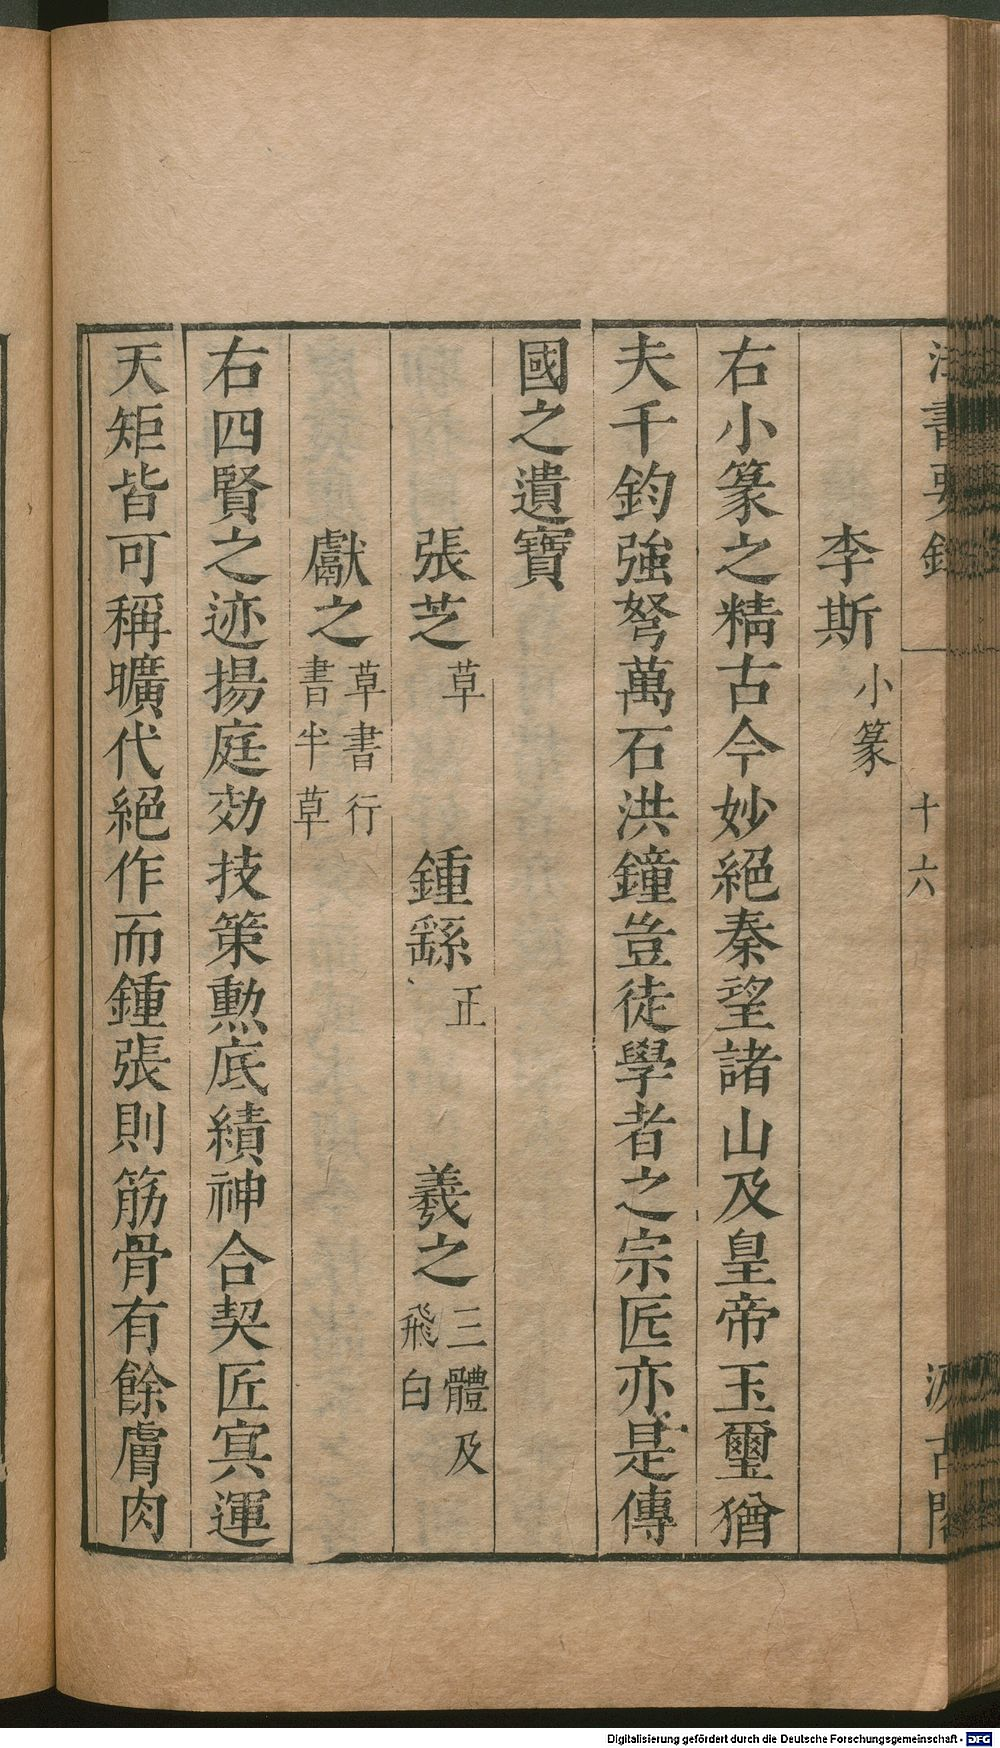 法書要錄
十六
汲古閣
李斯小篆
右小篆之精古今妙絕秦望諸山及皇帝玉璽猶
夫千鈞強弩萬石洪鐘豈徒學者之宗匠亦是傳
國之遺寶
張芝草 鍾繇正 羲之三體及飛白
獻之草書行書半草
右四賢之迹揚庭効技策勲底績神合契匠冥運
天矩皆可稱曠代絕作而鍾張則筋骨有餘膚肉
Digitalisierung gefördert durch die Deutsche Forschungsgemeinschaft - DFG